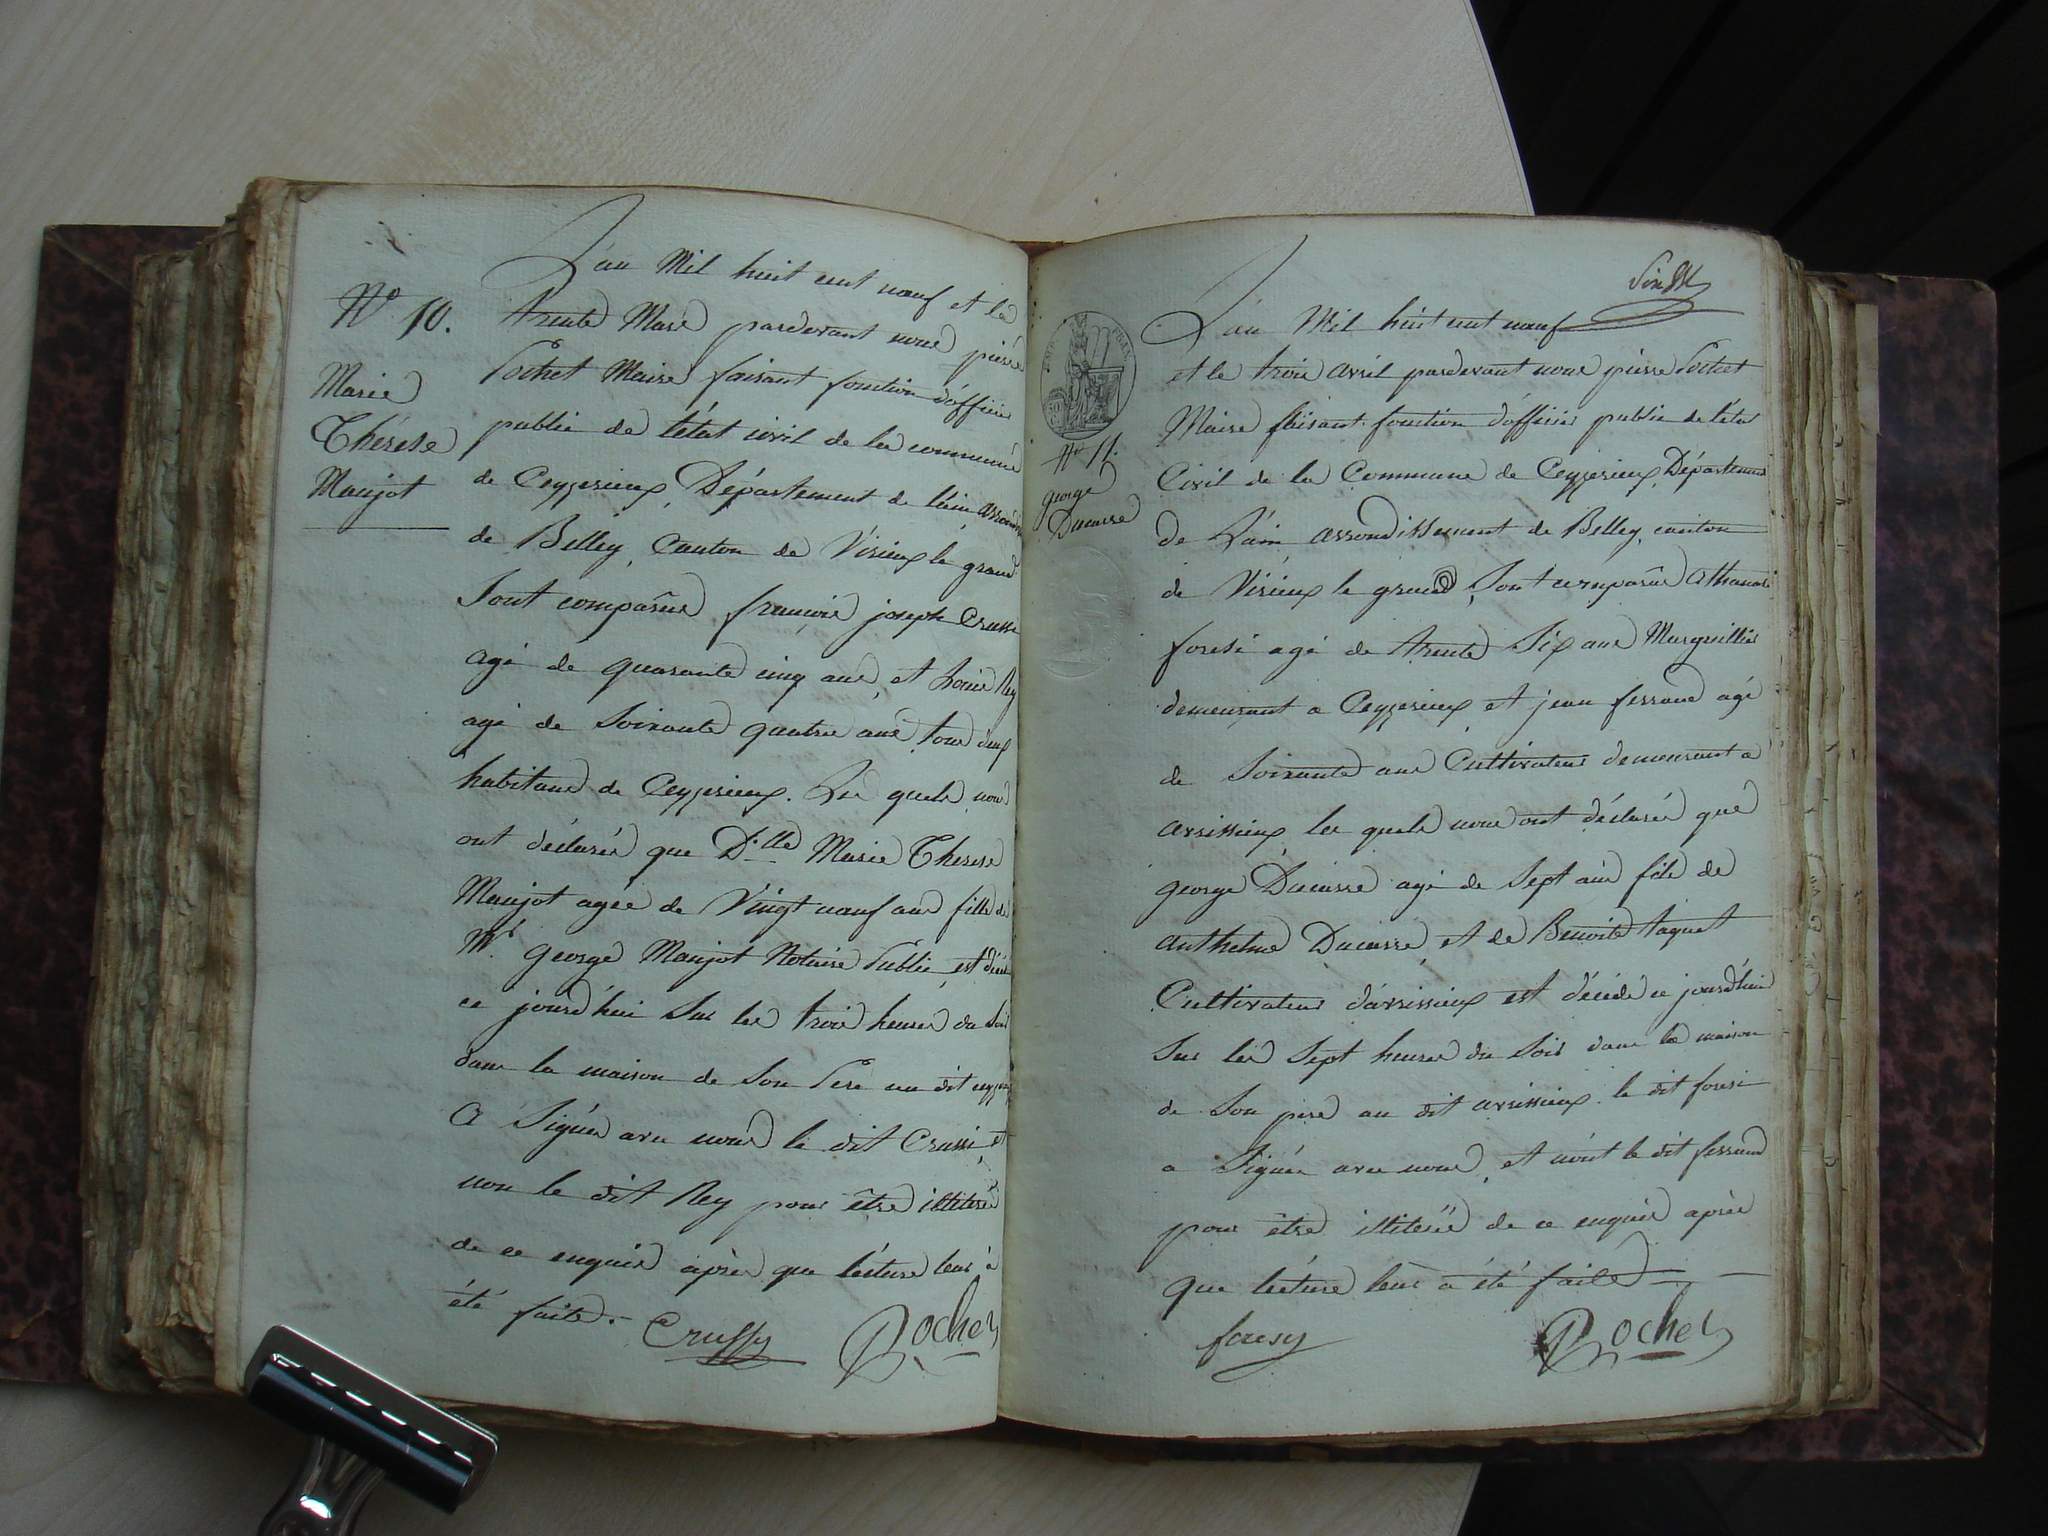 L'an Mil huit cent neuf et le
N.o 10.
trente Mars pardevant nous pierre
Pochet Maire faisant fonction d'officier
Marie
Thérèse
Maujot
public de l'état civil de la commune
de Ceyzerieux, Département de l'ain
de Belley, Canton de Virieux le grand
Sont comparus françois joseph Crussi
agé de quarante cinq ans, et Louis Rey
agé de Soixante quatre ans tous deux
habitans de Ceyzerieux. Les quels nous
ont déclarés que D.lle Marie Therese
Maujot agée de Vingt neuf ans fille de
Mr. George Maujot Notaire Public, est
ce jourd'hui Sur les trois heures du Soir
dans la maison de Son Pere au dit
A Signés avec nous le dit Crussi, et
non le dit Rey pour être illiterés
de ce enquis après que lecture leur à
été faite.
Crussy
Rochet
L'an Mil huit cent neuf
et le trois avril pardevant nous pierre Pochet
Maire faisant fonction d'officier public de l'état
N.o 11.
george
Ducarre
Civil de la Commune de Ceyzerieux, Département
de L'ain arrondissement de Belley, canton
de Virieux le grand, Sont comparus Athanase
foresi agé de trente Six ans Marguillier
demeurant a Ceyzerieux et jean ferrand agé
de Soixante ans Cultivateur demeurant a
avrissieux, les quels nous ont déclarés que
george Ducarre agé de Sept ans fils de
anthelme Ducarre, et de Benoite taquet
Cultivateur d'avrissieux est décédé ce jourd'hui
Sur les Sept heures du Soir dans la maison
de Son pere au dit avrissieux. le dit foresi
a Signés avec nous, et non le dit ferrand
pour être illiterés de ce enquis après
que lecture leur a été faite
foresy
Rochet